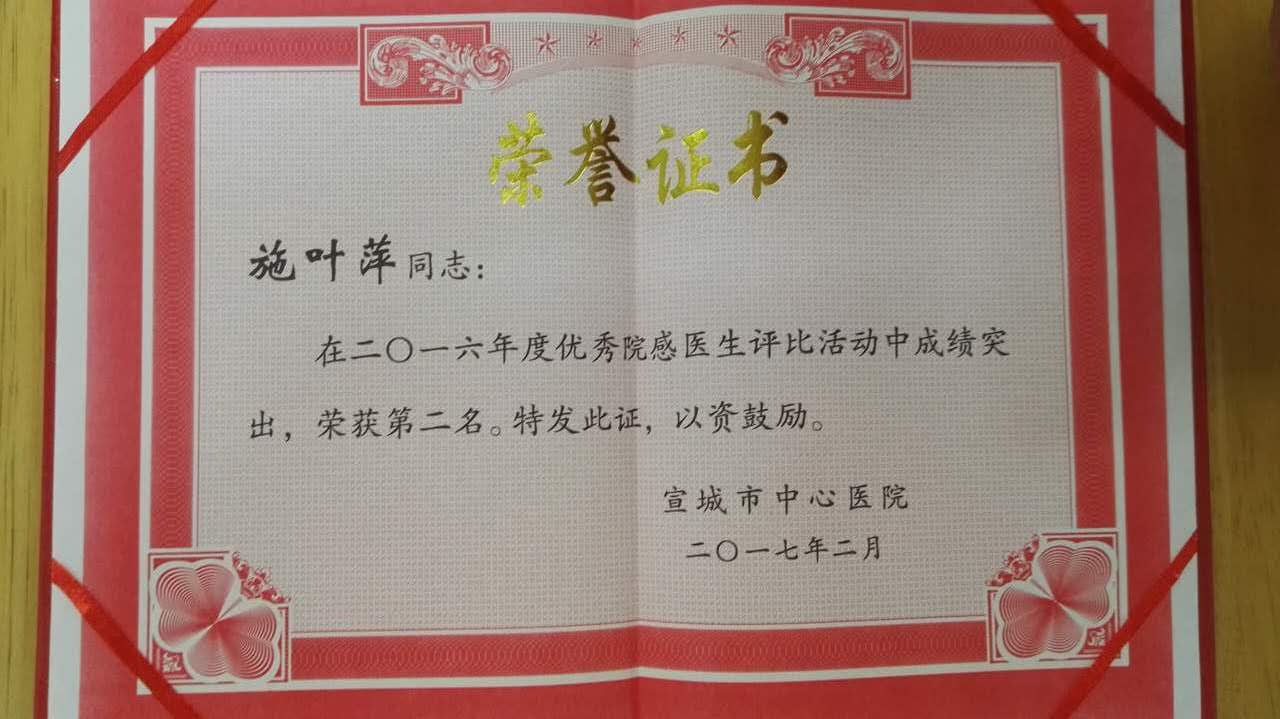 荣誉证书
施叶萍同志：
在二〇一六年度优秀院感医生评比活动中成绩突
出，荣获第二名。特发此证，以资鼓励。
宣城市中心医院
二〇一七年二月